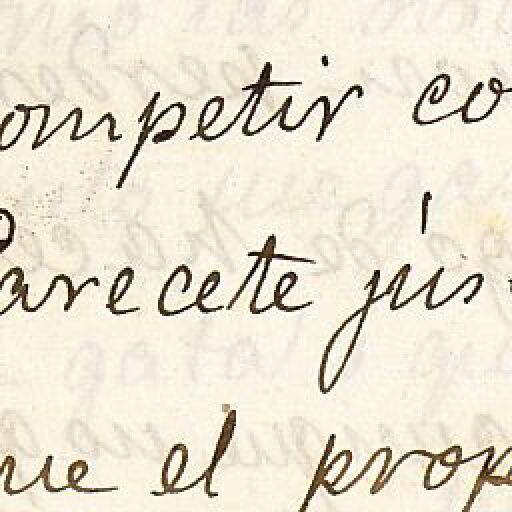 ompetir co
Parecete jús
ue el prop